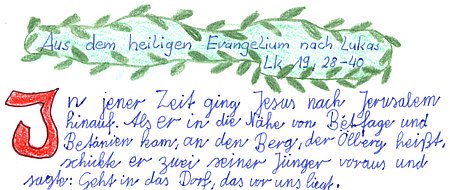 Aus dem heiligen Evangelium nach Lukas
Lk 19, 28-40
In jener Zeit ging Jesus nach Jerusalem
hinauf. Als er in die Nähe von Bétfage und
Betánien kam, an den Berg, der Ölberg heißt,
schickte er zwei seiner Jünger voraus und
sagte: Geht in das Dorf, das vor uns liegt.